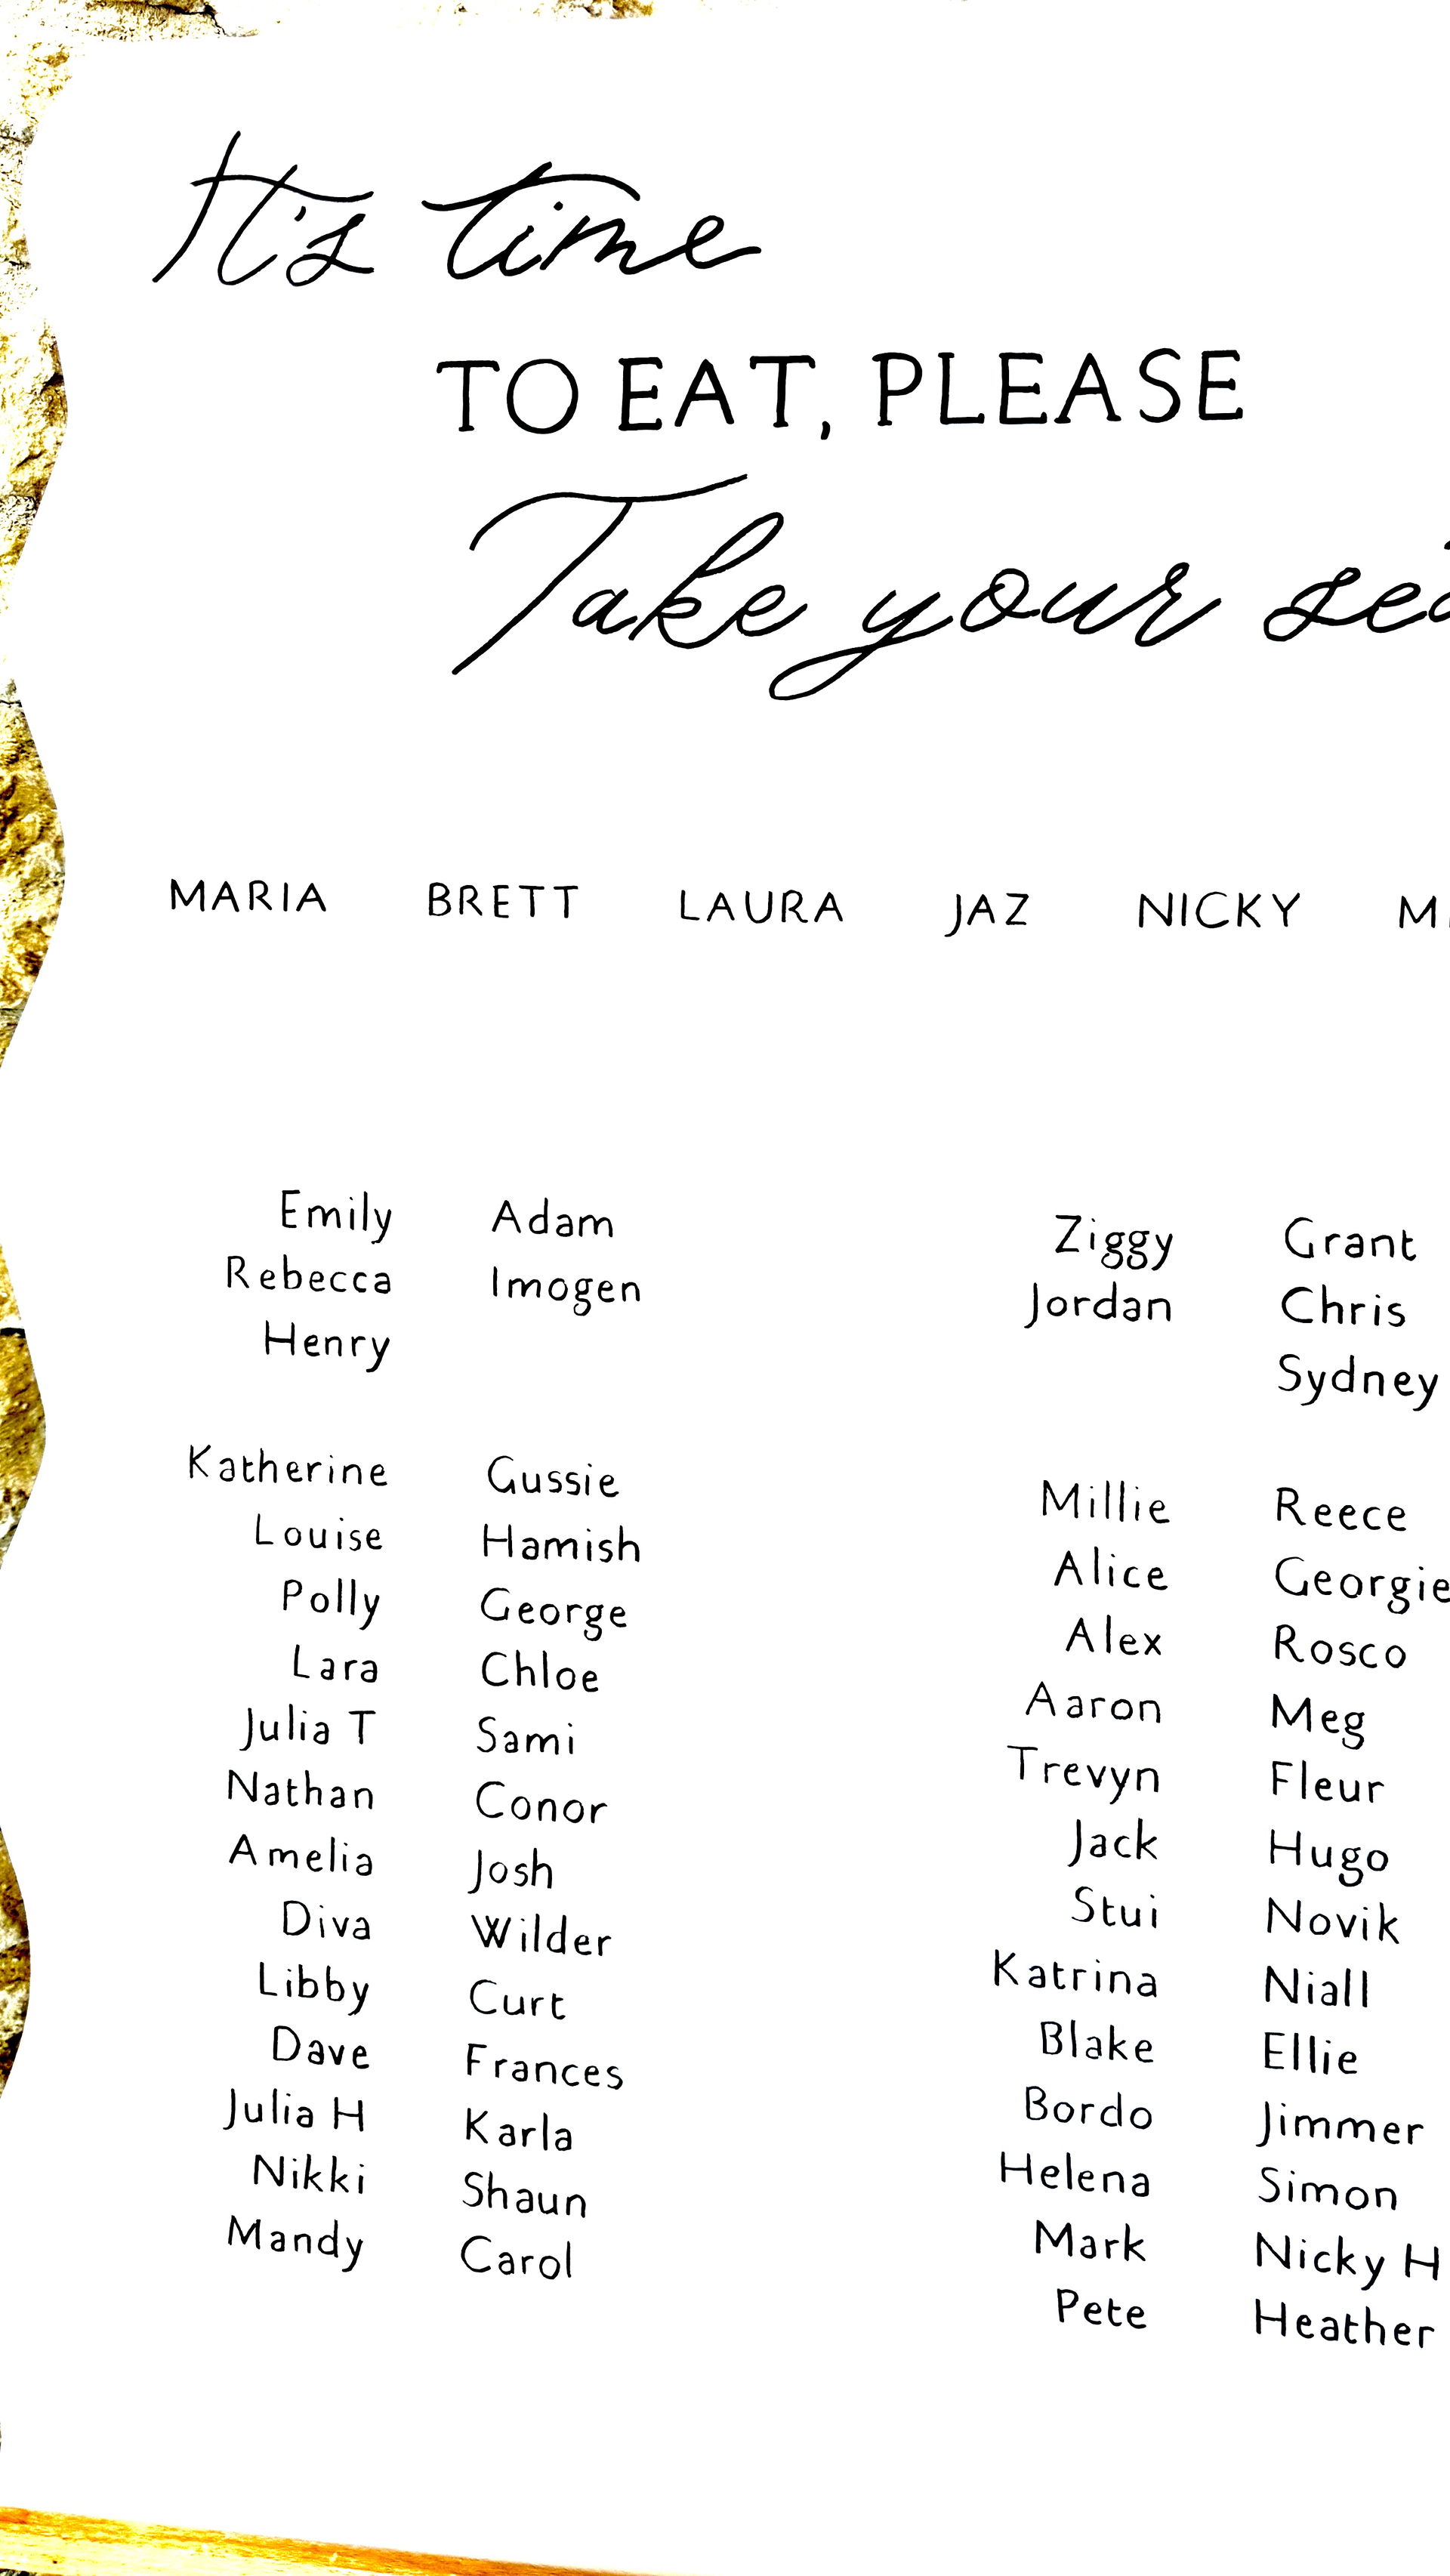 It's time
TO EAT, PLEASE
Take your
MARIA BRETT LAURA JAZ NICKY
Emily Adam
Rebecca Imogen
Henry
Katherine Gussie
Louise Hamish
Polly George
Lara Chloe
Julia T Sami
Nathan Conor
Amelia Josh
Diva Wilder
Libby Curt
Dave Frances
Julia H Karla
Nikki Shaun
Mandy Carol
Ziggy Grant
Jordan Chris
Sydney
Millie Reece
Alice Georgie
Alex Rosco
Aaron Meg
Trevyn Fleur
Jack Hugo
Stui Novik
Katrina Niall
Blake Ellie
Bordo Jimmer
Helena Simon
Mark Nicky H
Pete Heather